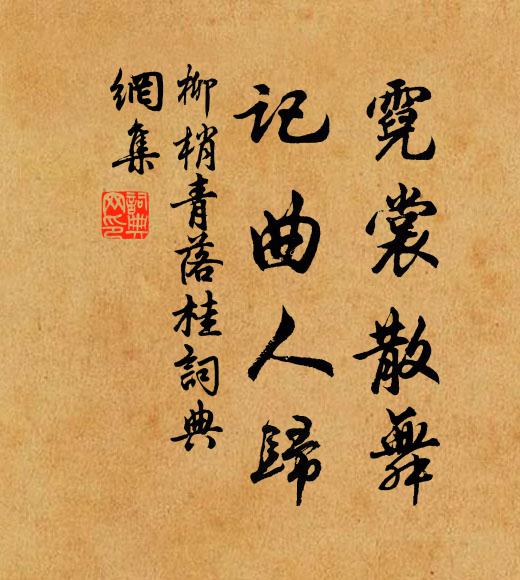 霓裳散舞
記曲人歸
柳梢青落桂詞典
網集
詞典
网印